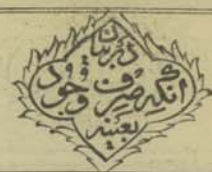 در بیان
آنکه صرف وجود
بعینه